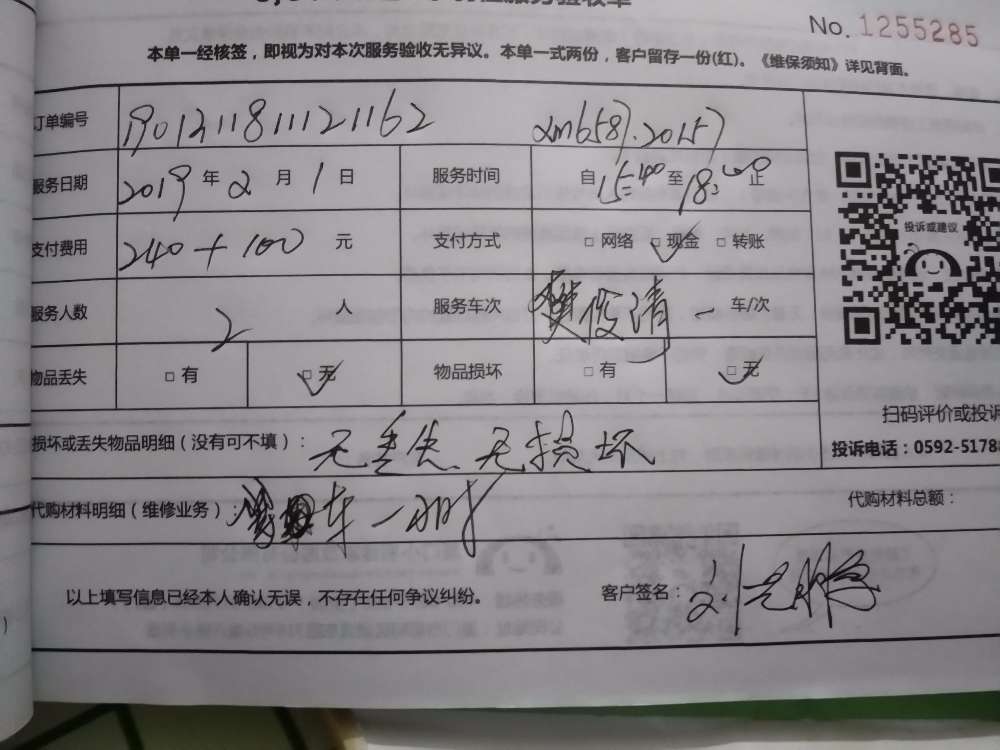 服务验收单
No. 1255285
本单一经核签，即视为对本次服务验收无异议。本单一式两份，客户留存一份(红)。《维保须知》详见背面。
订单编号 190131181112 1162 xm6587.20157
服务日期 2019 年 2 月 1 日 服务时间 自 15:40 至 18:00 止
支付费用 240+100 元 支付方式 □ 网络 □ 现金 □ 转账
服务人数 2 人 服务车次 樊俊清 一 车/次
物品丢失 □ 有 □ 无 物品损坏 □ 有 □ 无
投诉或建议
扫码评价或投诉
投诉电话：0592-5178
损坏或丢失物品明细（没有可不填）： 无丢失 无损坏
代购材料明细（维修业务）： 车一小时
代购材料总额：
以上填写信息已经本人确认无误，不存在任何争议纠纷。
客户签名： 刘